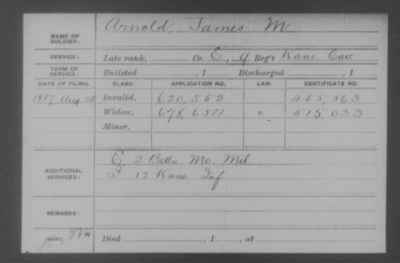 Arnold, James M
NAME OF SOLDIER:
SERVICE: Late rank, Co. E, 9 Reg't Kans. Cav.
TERM OF SERVICE: Enlisted , 1 Discharged , 1
DATE OF FILING. CLASS. APPLICATION NO. LAW. CERTIFICATE NO.
1887 Aug. Invalid, 620,552 455,563
Widow, 515,033
Minor,
ADDITIONAL SERVICES: E 2 Batty Mo. Mil
F 12 Kans. Inf
REMARKS:
Died , 1 , at